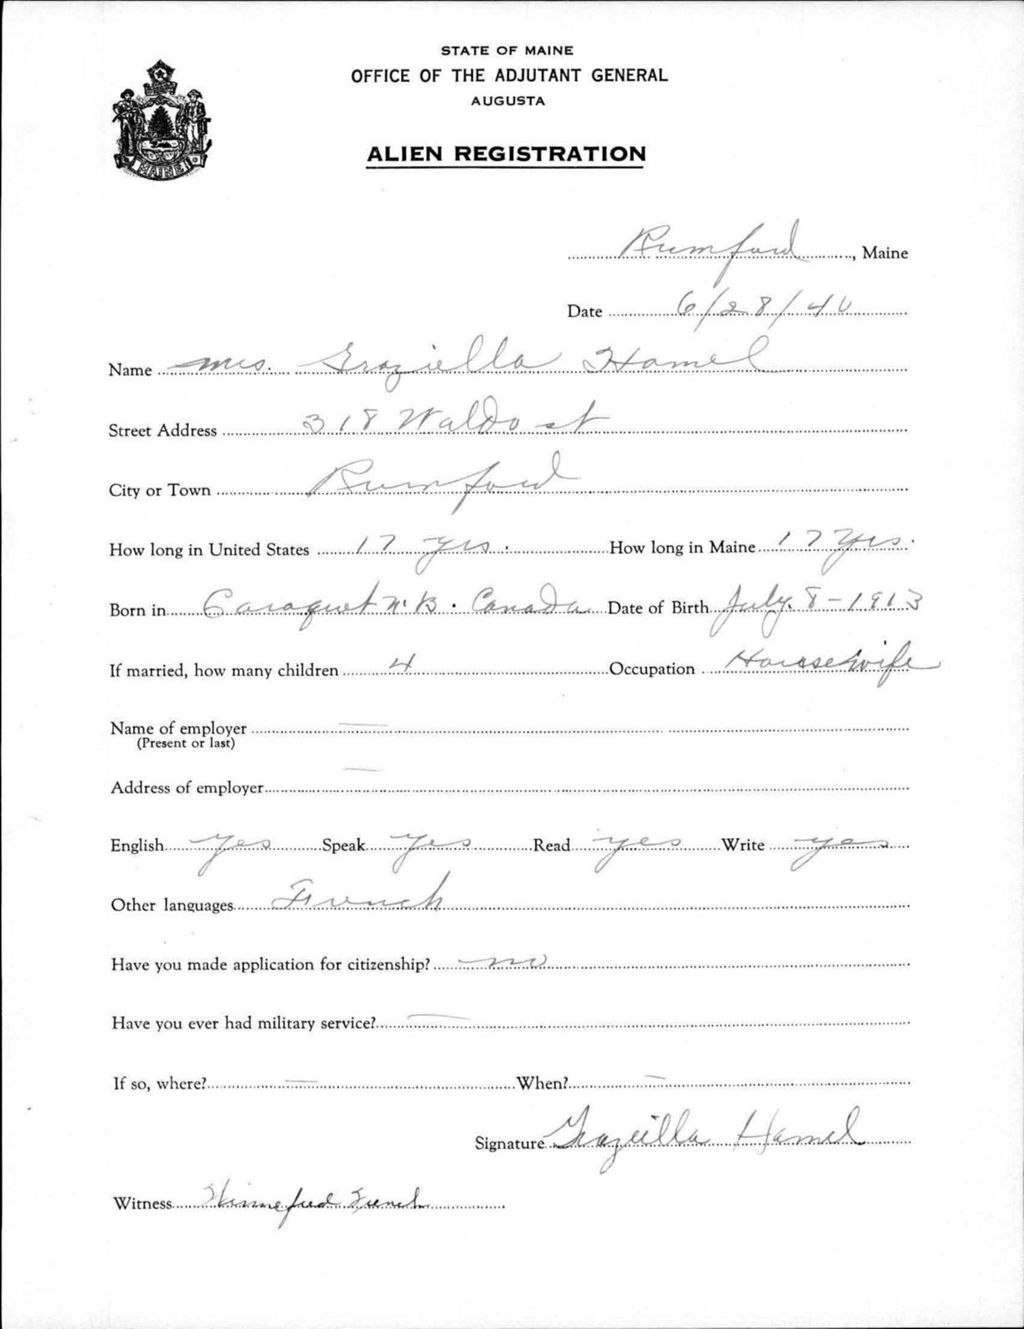 STATE OF MAINE
OFFICE OF THE ADJUTANT GENERAL
AUGUSTA
ALIEN REGISTRATION
MAINE
Rumford, Maine
Date 6/28/40
Name Mrs. Graziella Hamel
Street Address 318 Waldo st
City or Town Rumford
How long in United States 17 yrs. How long in Maine 17 yrs.
Born in Caraquet N.B. Canada Date of Birth July. 8-1913
If married, how many children 4 Occupation Housewife
Name of employer —
(Present or last)
Address of employer —
English yes Speak yes Read yes Write yes
Other languages French
Have you made application for citizenship? no
Have you ever had military service? —
If so, where? — When? —
Signature Grazeilla Hamel
Witness Winnefred French